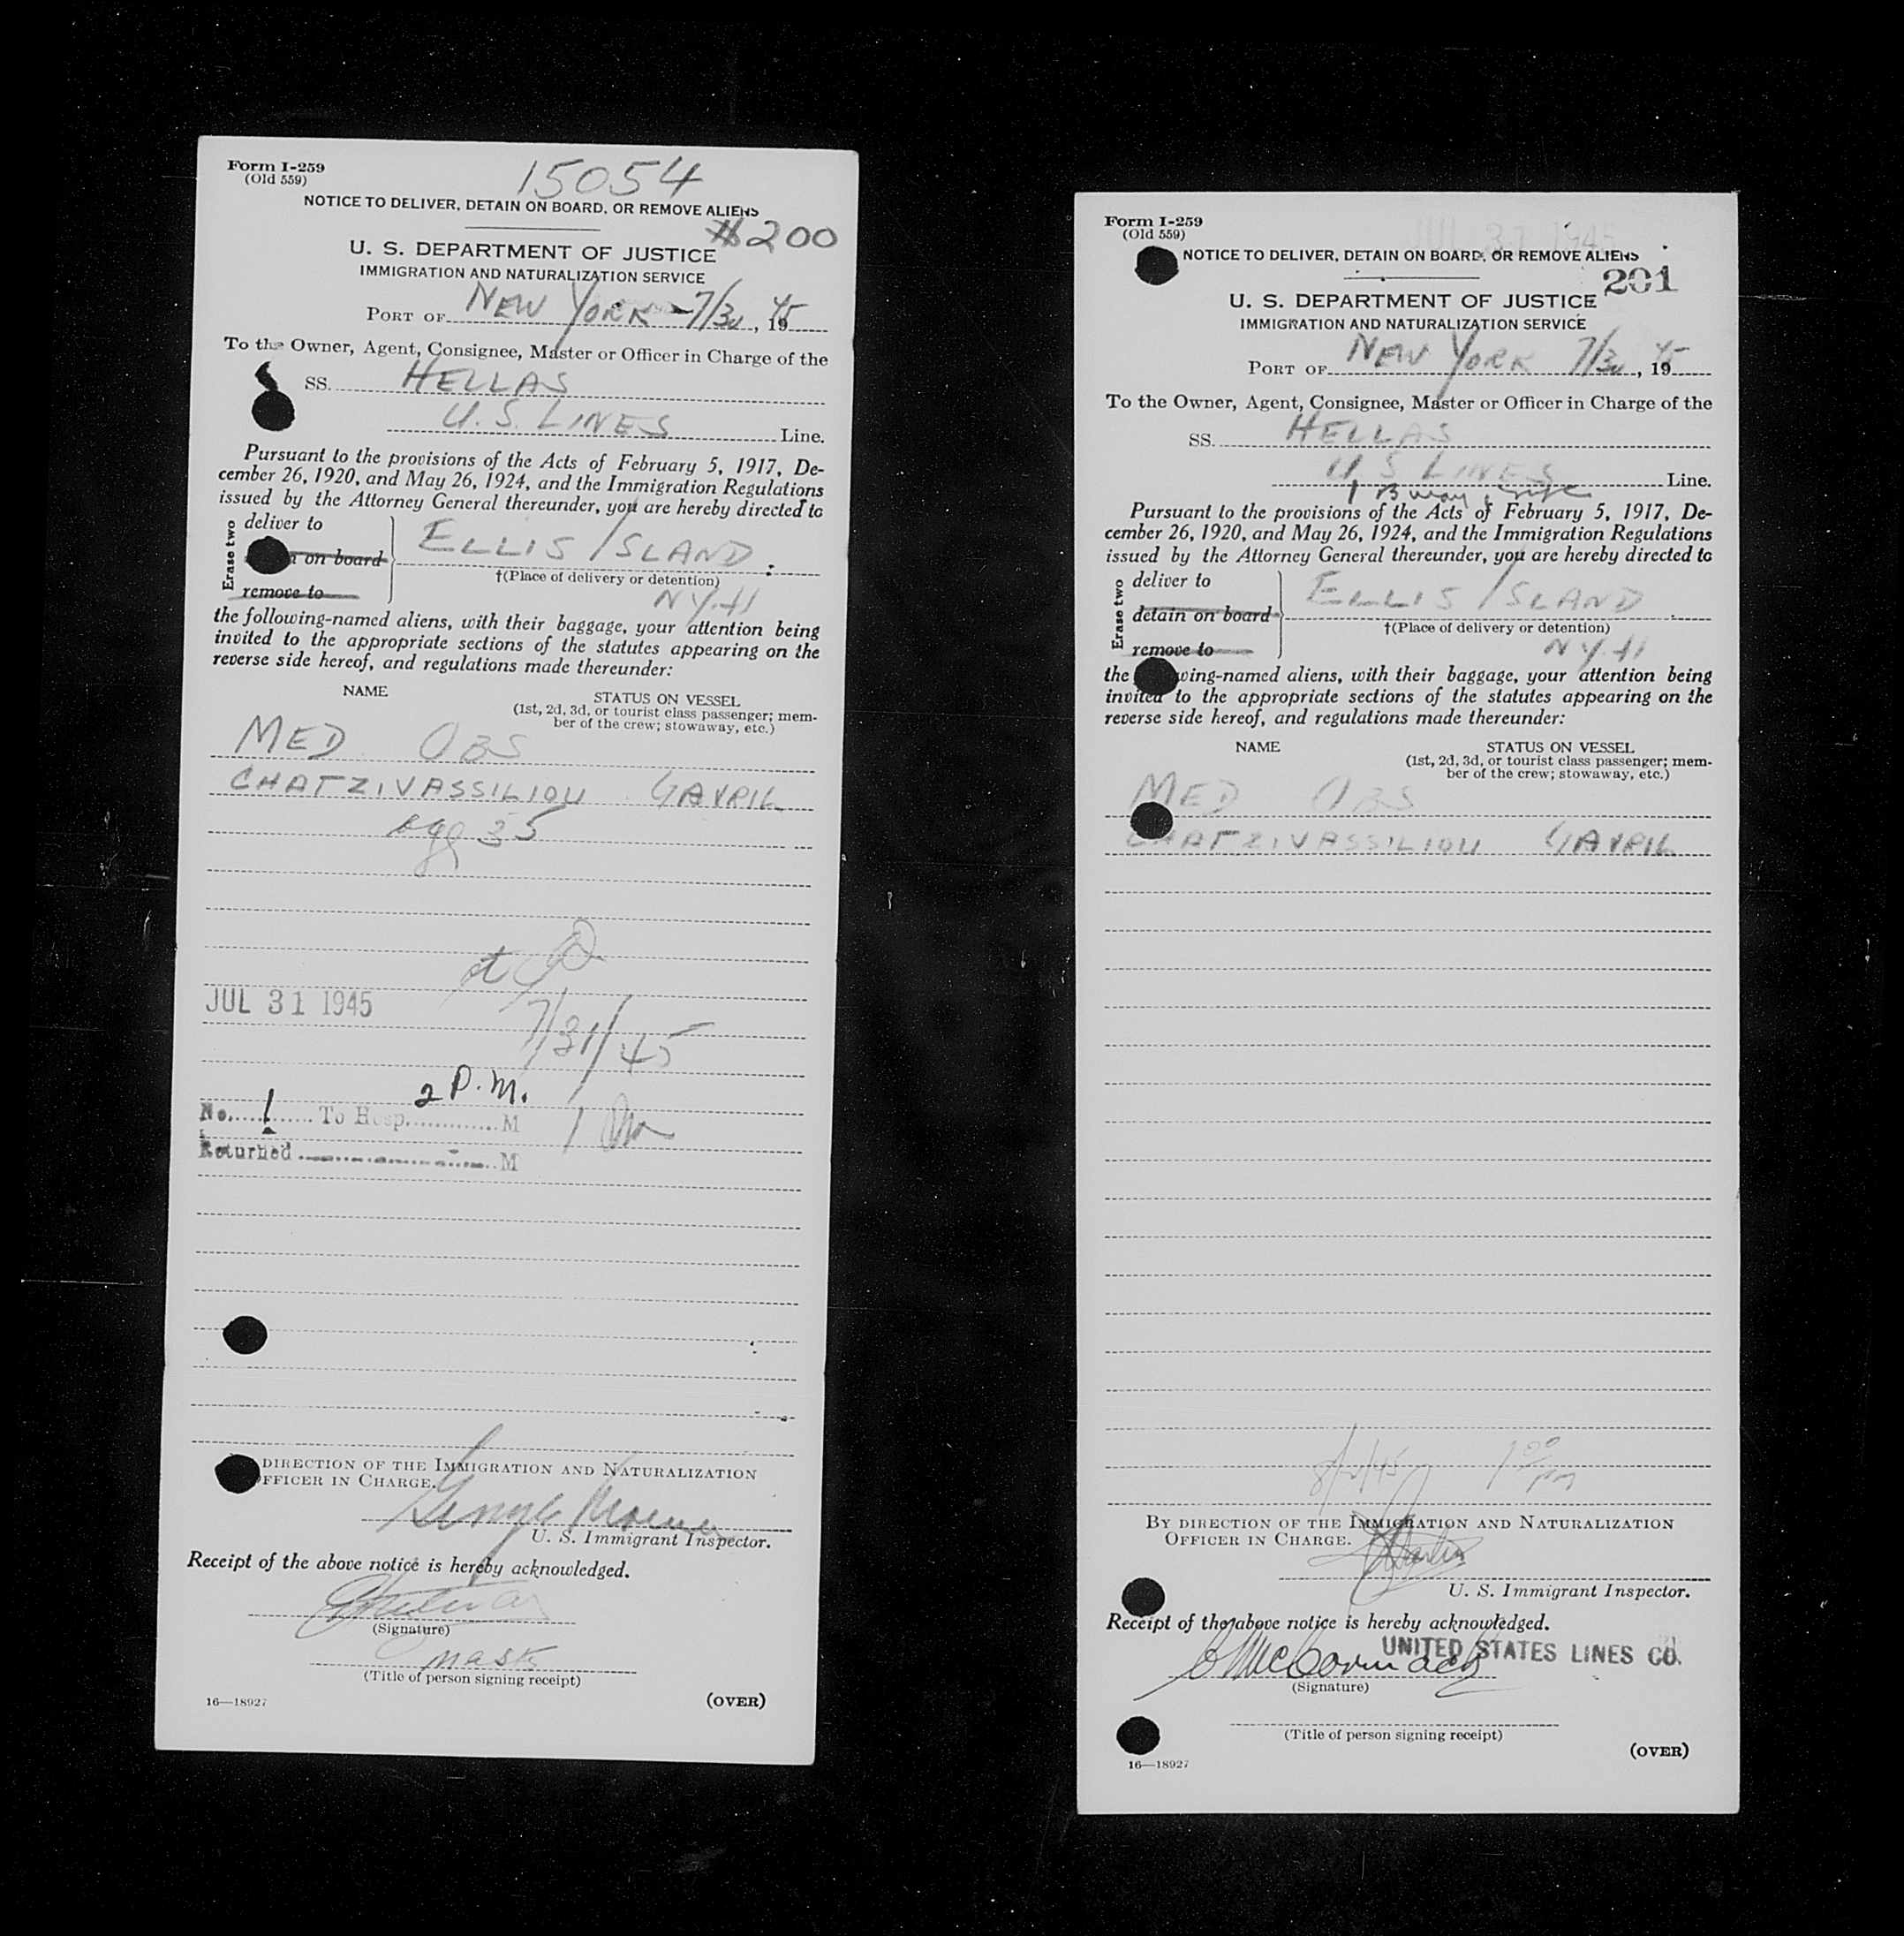 Form I-259
(Old 559)
15054
NOTICE TO DELIVER, DETAIN ON BOARD, OR REMOVE ALIENS
#200
U. S. DEPARTMENT OF JUSTICE
IMMIGRATION AND NATURALIZATION SERVICE
PORT OF NEW YORK - 7/30, 1945
To the Owner, Agent, Consignee, Master or Officer in Charge of the
SS. HELLAS
U.S. LINES Line.
Pursuant to the provisions of the Acts of February 5, 1917, De-
cember 26, 1920, and May 26, 1924, and the Immigration Regulations
issued by the Attorney General thereunder, you are hereby directed to
Erase two
deliver to
on board
remove to
ELLIS ISLAND
†(Place of delivery or detention)
N Y H
the following-named aliens, with their baggage, your attention being
invited to the appropriate sections of the statutes appearing on the
reverse side hereof, and regulations made thereunder:
NAME
STATUS ON VESSEL
(1st, 2d, 3d, or tourist class passenger; mem-
ber of the crew; stowaway, etc.)
MED OBS
CHATZIVASSILIOU GAVRIL
age 35
JUL 31 1945
7/31/45
2 P.M.
No. 1 To Hosp. M
Returned M
DIRECTION OF THE IMMIGRATION AND NATURALIZATION
OFFICER IN CHARGE.
U. S. Immigrant Inspector.
Receipt of the above notice is hereby acknowledged.
(Signature)
(Title of person signing receipt)
16—18927
(OVER)
Form I-259
(Old 559)
JUL 31 1945
NOTICE TO DELIVER, DETAIN ON BOARD, OR REMOVE ALIENS
201
U. S. DEPARTMENT OF JUSTICE
IMMIGRATION AND NATURALIZATION SERVICE
PORT OF NEW YORK 7/30, 1945
To the Owner, Agent, Consignee, Master or Officer in Charge of the
SS. HELLAS
U. S LINES Line.
1 Bway
Pursuant to the provisions of the Acts of February 5, 1917, De-
cember 26, 1920, and May 26, 1924, and the Immigration Regulations
issued by the Attorney General thereunder, you are hereby directed to
Erase two
deliver to
detain on board
remove to
ELLIS ISLAND
†(Place of delivery or detention)
N Y H
the wing-named aliens, with their baggage, your attention being
invited to the appropriate sections of the statutes appearing on the
reverse side hereof, and regulations made thereunder:
NAME
STATUS ON VESSEL
(1st, 2d, 3d, or tourist class passenger; mem-
ber of the crew; stowaway, etc.)
MED OBS
CHATZIVASSILIOU GAVRIL
BY DIRECTION OF THE IMMIGRATION AND NATURALIZATION
OFFICER IN CHARGE.
U. S. Immigrant Inspector.
Receipt of the above notice is hereby acknowledged.
UNITED STATES LINES CO.
McCormack
(Signature)
(Title of person signing receipt)
16—18927
(OVER)